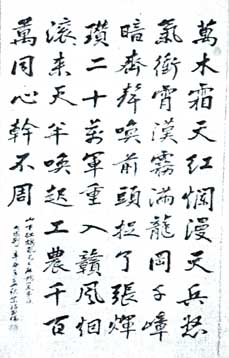 萬木霜天紅爛漫天兵怒
氣衝霄漢霧滿龍岡千嶂
暗齊聲喚前頭捉了張輝
瓚二十萬軍重入贛風烟
滾来天半喚起工農千百
萬同心幹不周